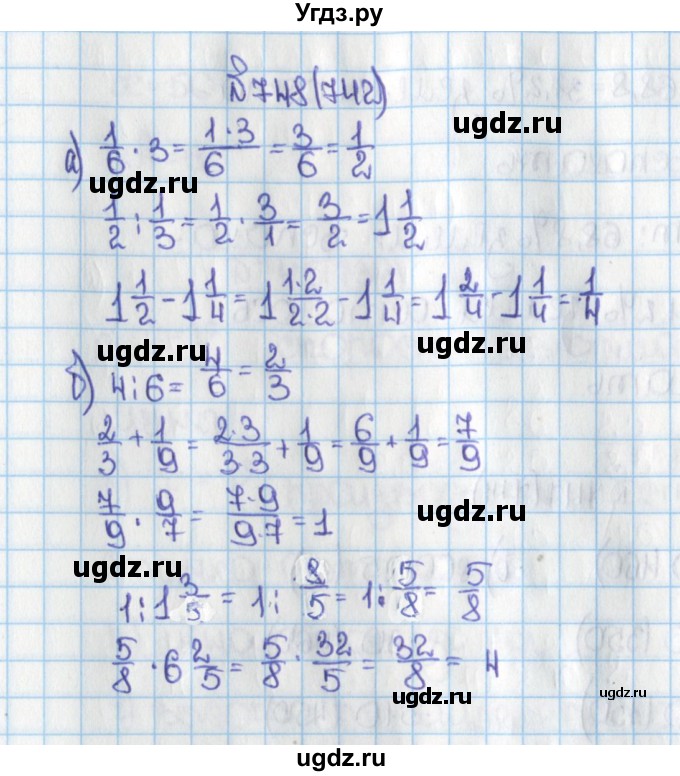 Угдз.ру
№748(742)
а) 1/6 · 3 = 1·3/6 = 3/6 = 1/2
ugdz.ru ugdz.ru
1/2 : 1/3 = 1/2 · 3/1 = 3/2 = 1 1/2
1 1/2 - 1 1/4 = 1 1·2/2·2 - 1 1/4 = 1 2/4 - 1 1/4 = 1/4
ugdz.ru ugdz.ru
б) 4 : 6 = 4/6 = 2/3
2/3 + 1/9 = 2·3/3·3 + 1/9 = 6/9 + 1/9 = 7/9
7/9 · 9/7 = 7·9/9·7 = 1
ugdz.ru
ugdz.ru
1 : 1 3/5 = 1 : 8/5 = 1 : 5/8 = 5/8
5/8 · 6 2/5 = 5/8 · 32/5 = 32/8 = 4
ugdz.ru ugdz.ru
ugdz.ru